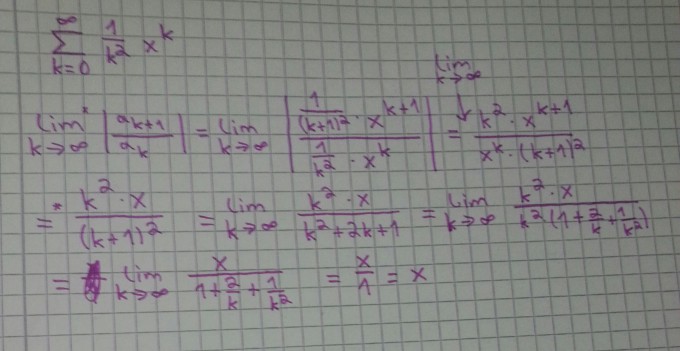 ∞
∑ 1/k² x^k
k=0
lim k→∞ |a_{k+1}/a_k| = lim k→∞ |(1/(k+1)² · x^{k+1})/(1/k² · x^k)| = lim k→∞ ↓ (k² · x^{k+1})/(x^k · (k+1)²)
= * (k² · x)/((k+1)²) = lim k→∞ (k² · x)/(k²+2k+1) = lim k→∞ (k² · x)/(k²(1+2/k+1/k²))
= lim k→∞ x/(1+2/k+1/k²) = x/1 = x